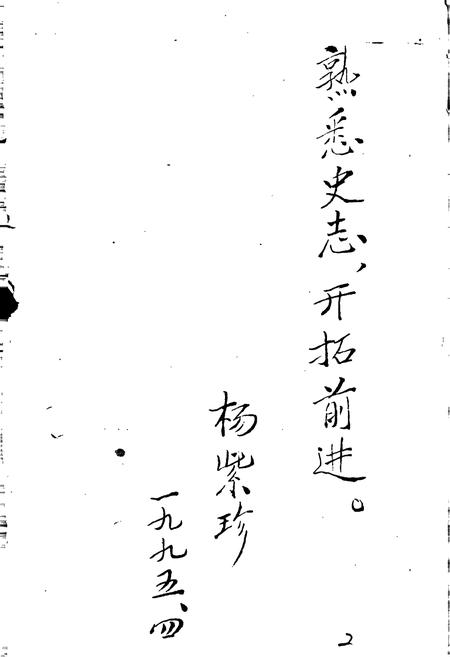 熟悉史志，开拓前进。
杨紫珍
一九九五、四
2